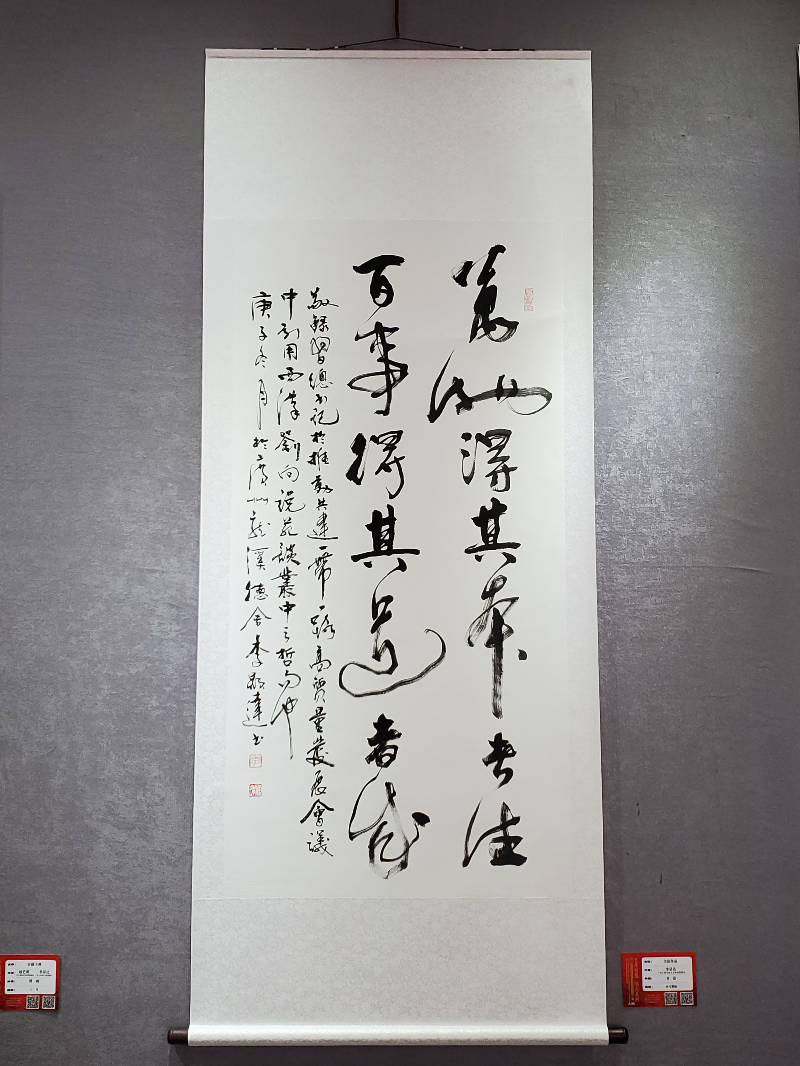 萬物得其本者生
百事得其道者成
敬錄習總书記於推動共建一帶一路高質量發展會議
中引用西漢劉向説苑談叢中之哲句也
庚子冬月於广州龍溪德舍李敬達书